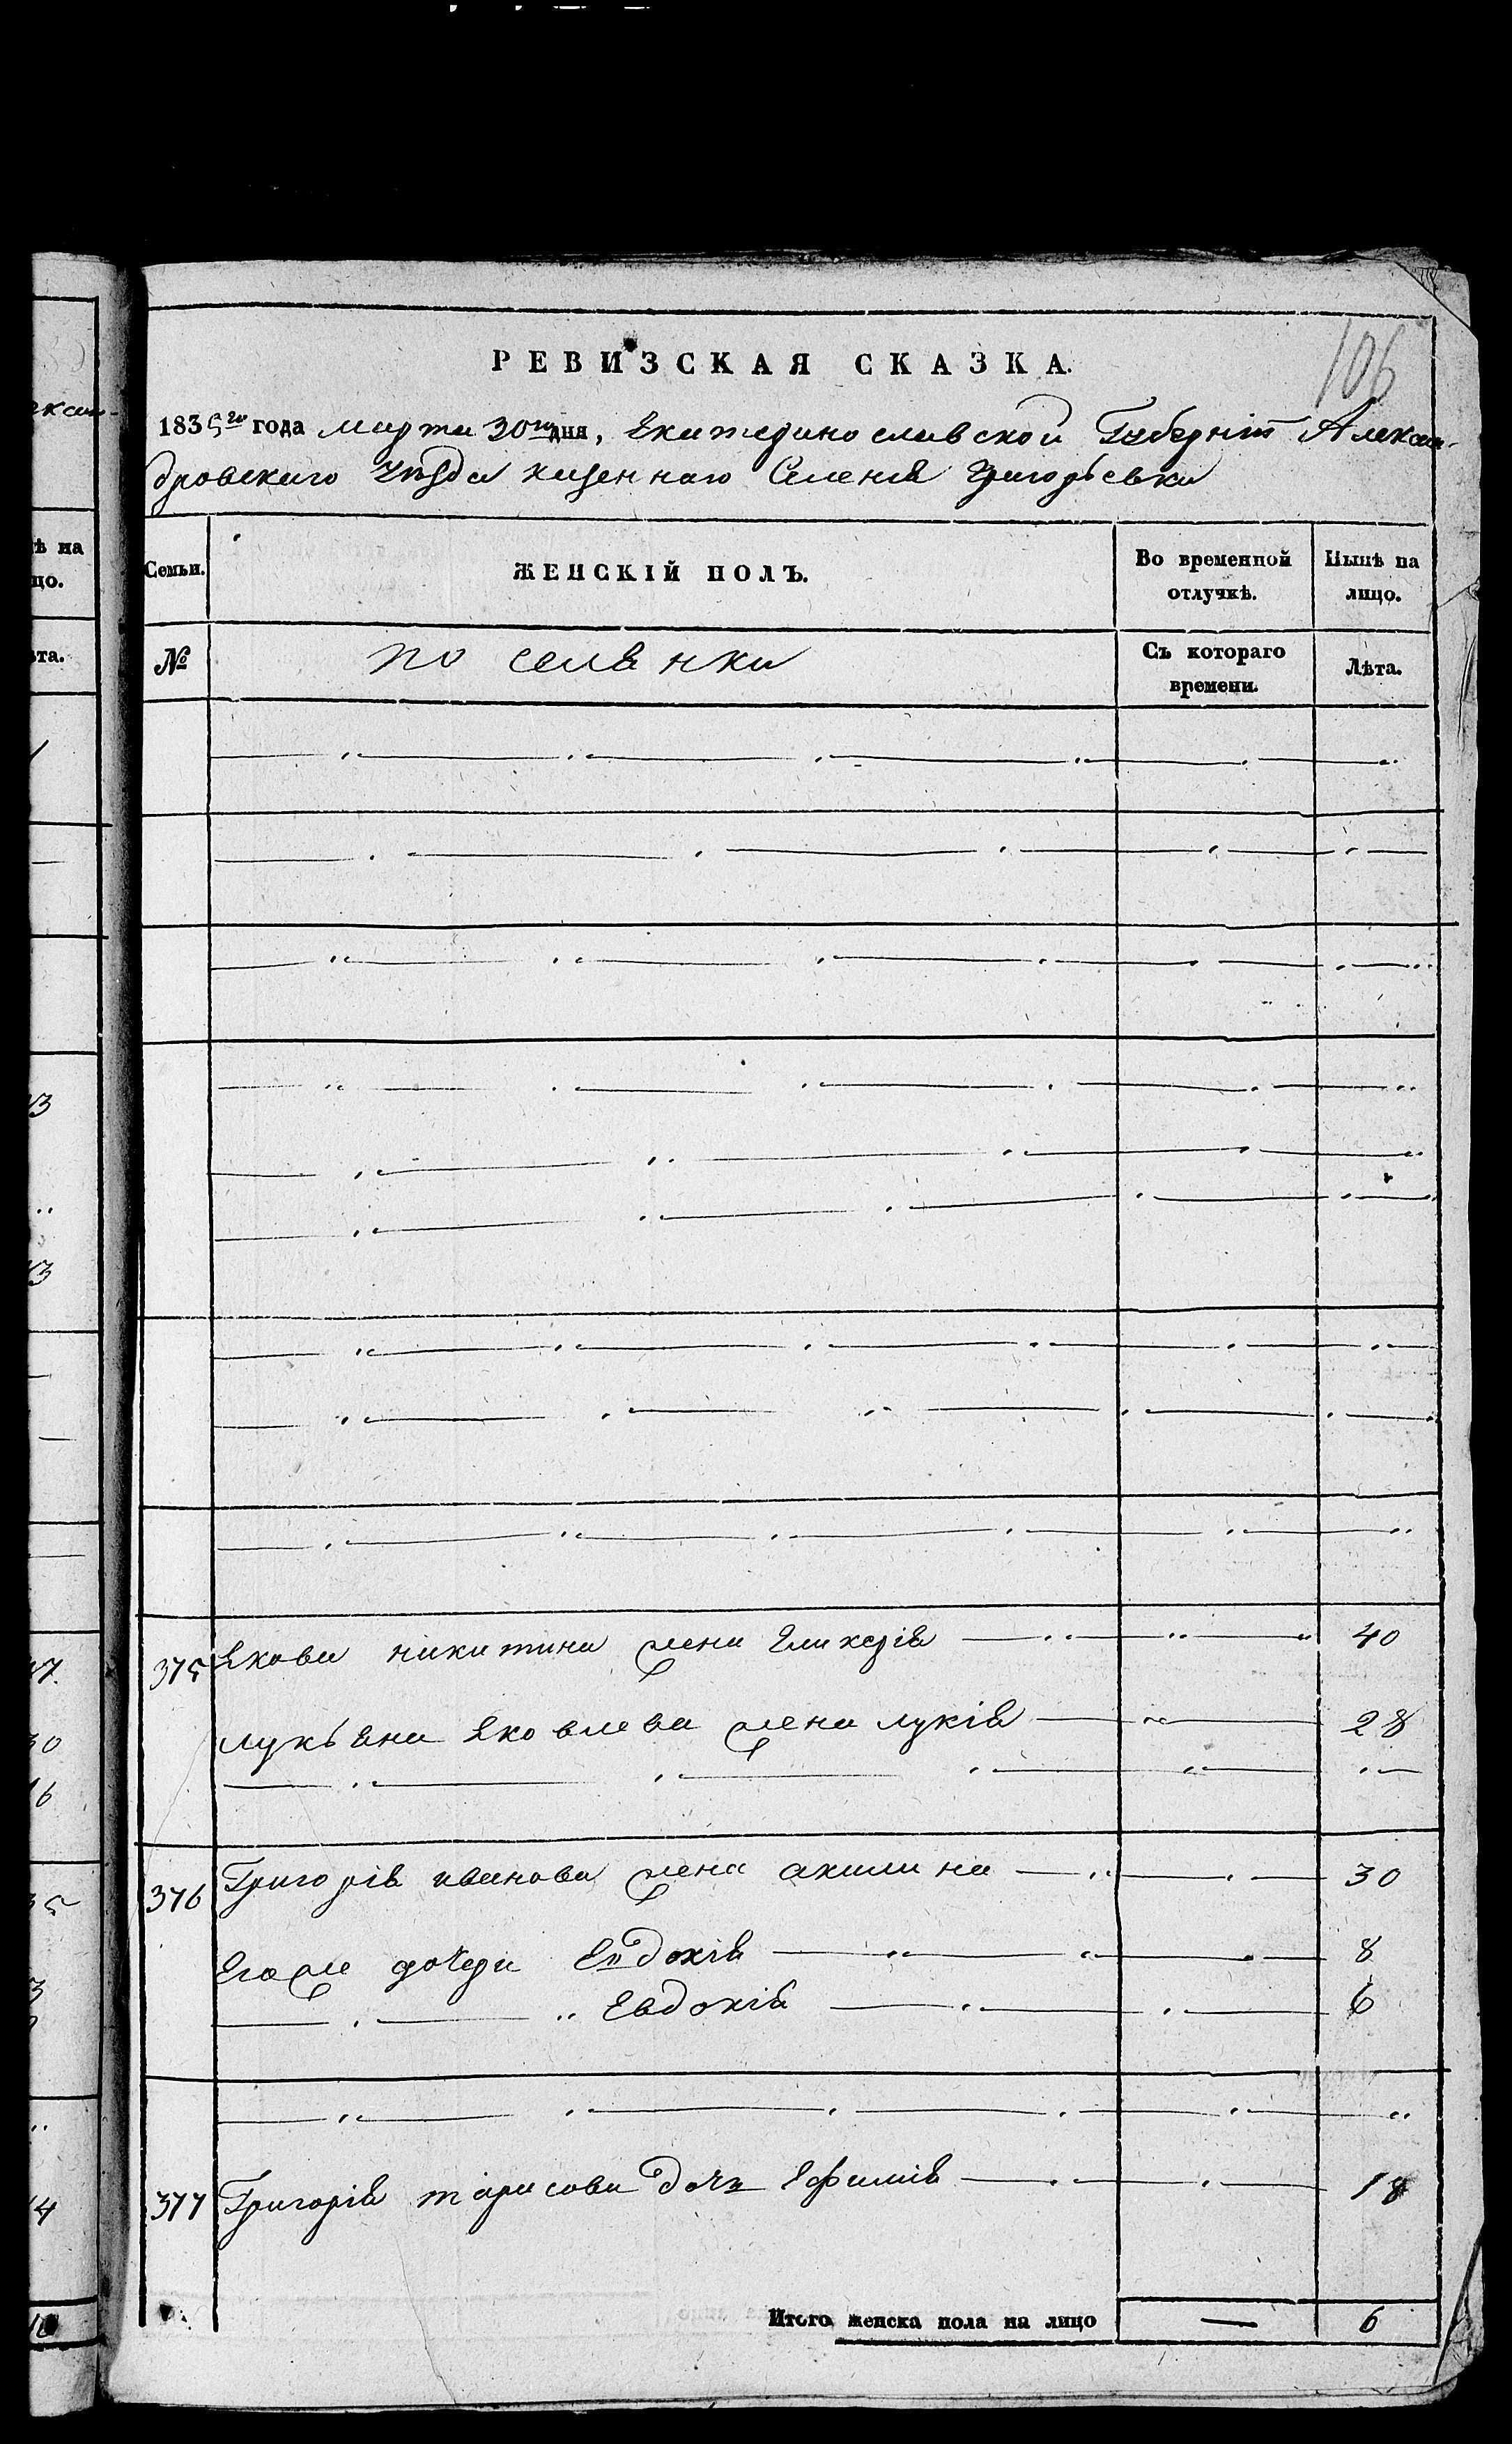 106
РЕВИЗСКАЯ СКАЗКА.
1835го года Марта 30го дня, Екатеринославской Губерніи Алексан-
дровскаго Уѣзда казеннаго Селенія Григорьевки
Семьи. ЖЕНСКІЙ ПОЛЪ. Во временной отлучкѣ. Нынѣ на лицо.
№ поселянки Съ котораго времени. Лѣта.
375 Якова никитина жена Гликерія 40
лукьяна Яковлева жена лукія 28
376 Григорія иванова жена акилина 30
Егоже дочери Евдокія 8
Евдокія 6
377 Григорія тарасова дочь Ефимія 18
Итого женска пола на лицо — 6